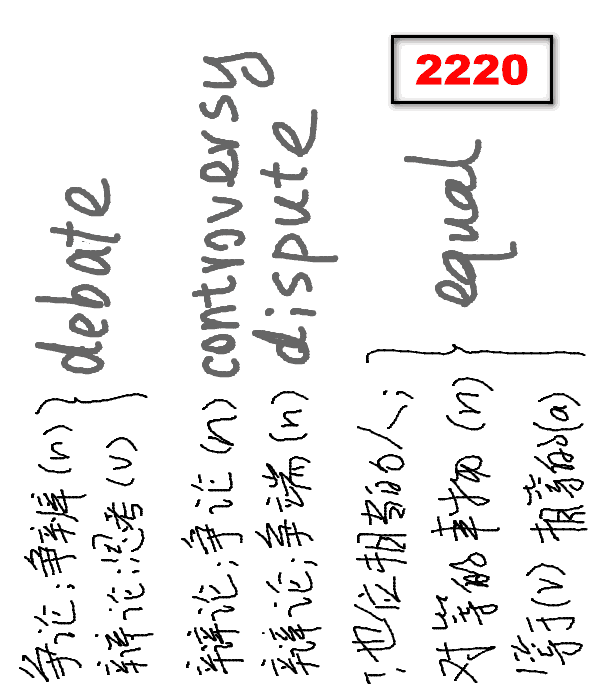 2220
争论;争辩(n)
辩论;思考(v)
debate
辩论;争论(n) controversy
辩论;争端(n) dispute
地位相等的人;
对等的事物(n)
等于(v) 相等的(a)
equal